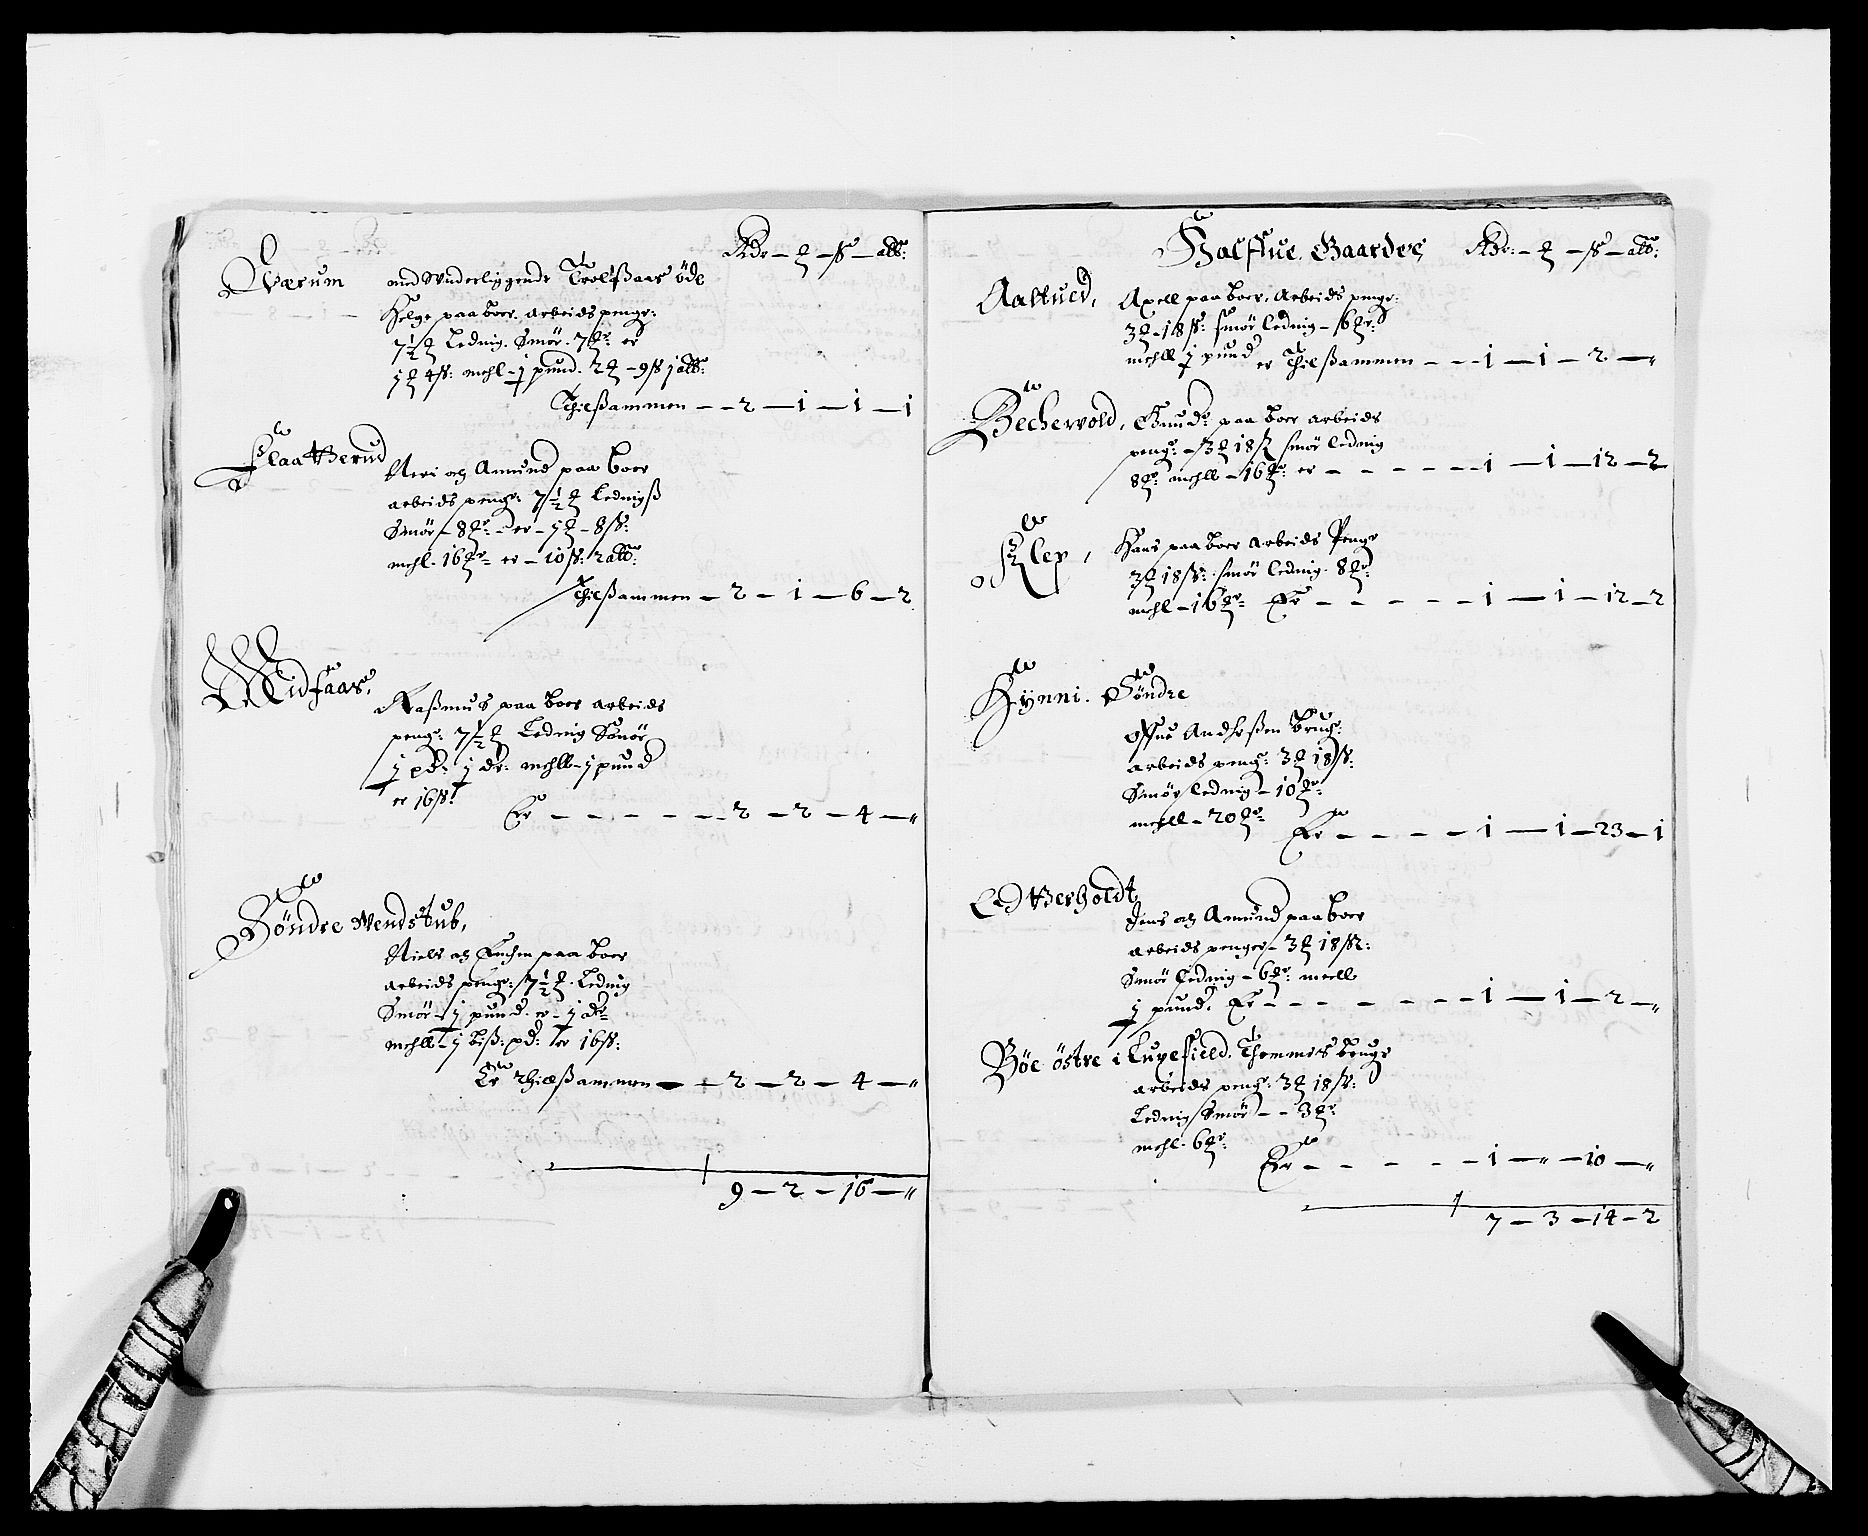 Rdr — ƺ — ß — alb:
Qværum med Vnderliggende Trolsaas öde
Helge paa boer. arbeids penge:
7½ ƺ Lednig. Smör. 7 ƺr: er
j ƺ 4 ß: mehl - j pund. 2 ƺ - 9 ß j alb:
Thilsammen — — 2 — 1 — 1 — 1
Flaatterud Neri og Amund paa boer
arbeids penge: 7½ ƺ Lednigs
Smör - 8 ƺr - er - j ƺ - 8 ß:
mehl. 16 ƺr = er - 10 ß: 2 alb:
Thilsammen — 2 — 1 — 6 — 2
Midfaas, Rasmus paa boer arbeids
penge: 7½ ƺ Lednig Smör
j pd: j dr: mehll - j pund
er 16 ß:
Er — — — — — — 2 — 2 — 4 — "
Söndre Vendstub,
Niels og paa boer
arbeids penge: 7½ ƺ. Lednig
Smör - j pund. er - j dr
mehll - j biß: pd: er 16 ß:
Er Thilsammen — — 2 — 2 — 4 — "
9 — 2 — 16 — "
Halffue. Gaarder Rdr: — ƺ — ß — alb:
Aaltued, Axell paa boer. Arbeids penge:
3 ƺ - 18 ß: smör lednig - 6 ƺr:
mehll j pund er Thilsammen — — 1 — 1 — 2 — "
Bechervold, Gnud paa boer arbeids
peng: - 3 ƺ 18 ß smör lednig
8 ƺr: mehll - 16 ƺr: er — — — — — 1 — 1 — 12 — 2
Klep, Hans paa boer arbeids Penge
3 ƺ 18 ß: smör lednig. 8 ƺr:
mehl - 16 ƺr = Er — — — — — 1 — 1 — 12 — 2
Kynni. Söndre
Offue Anderßen brug:
arbeids peng: 3 ƺ 18 ß:
Smör lednig - 10 ƺr:
mehll - 20 ƺr = Er — — — — — 1 — 1 — 23 — 1
Ledtberholdt
Jens og Amund paa boer
arbeids penger - 3 ƺ 18 ß:
Smör lednig - 6 ƺr: meell
j pund. Er — — — — — — 1 — 1 — 2 — "
Böe östre i Luxefield. Thommes bruge
arbeids peng: 3 ƺ 18 ß:
Lednig Smör - - 3 ƺr:
mehl. 6 ƺr:
Er — — — — — 1 — " — 10 — "
7 — 3 — 14 — 2